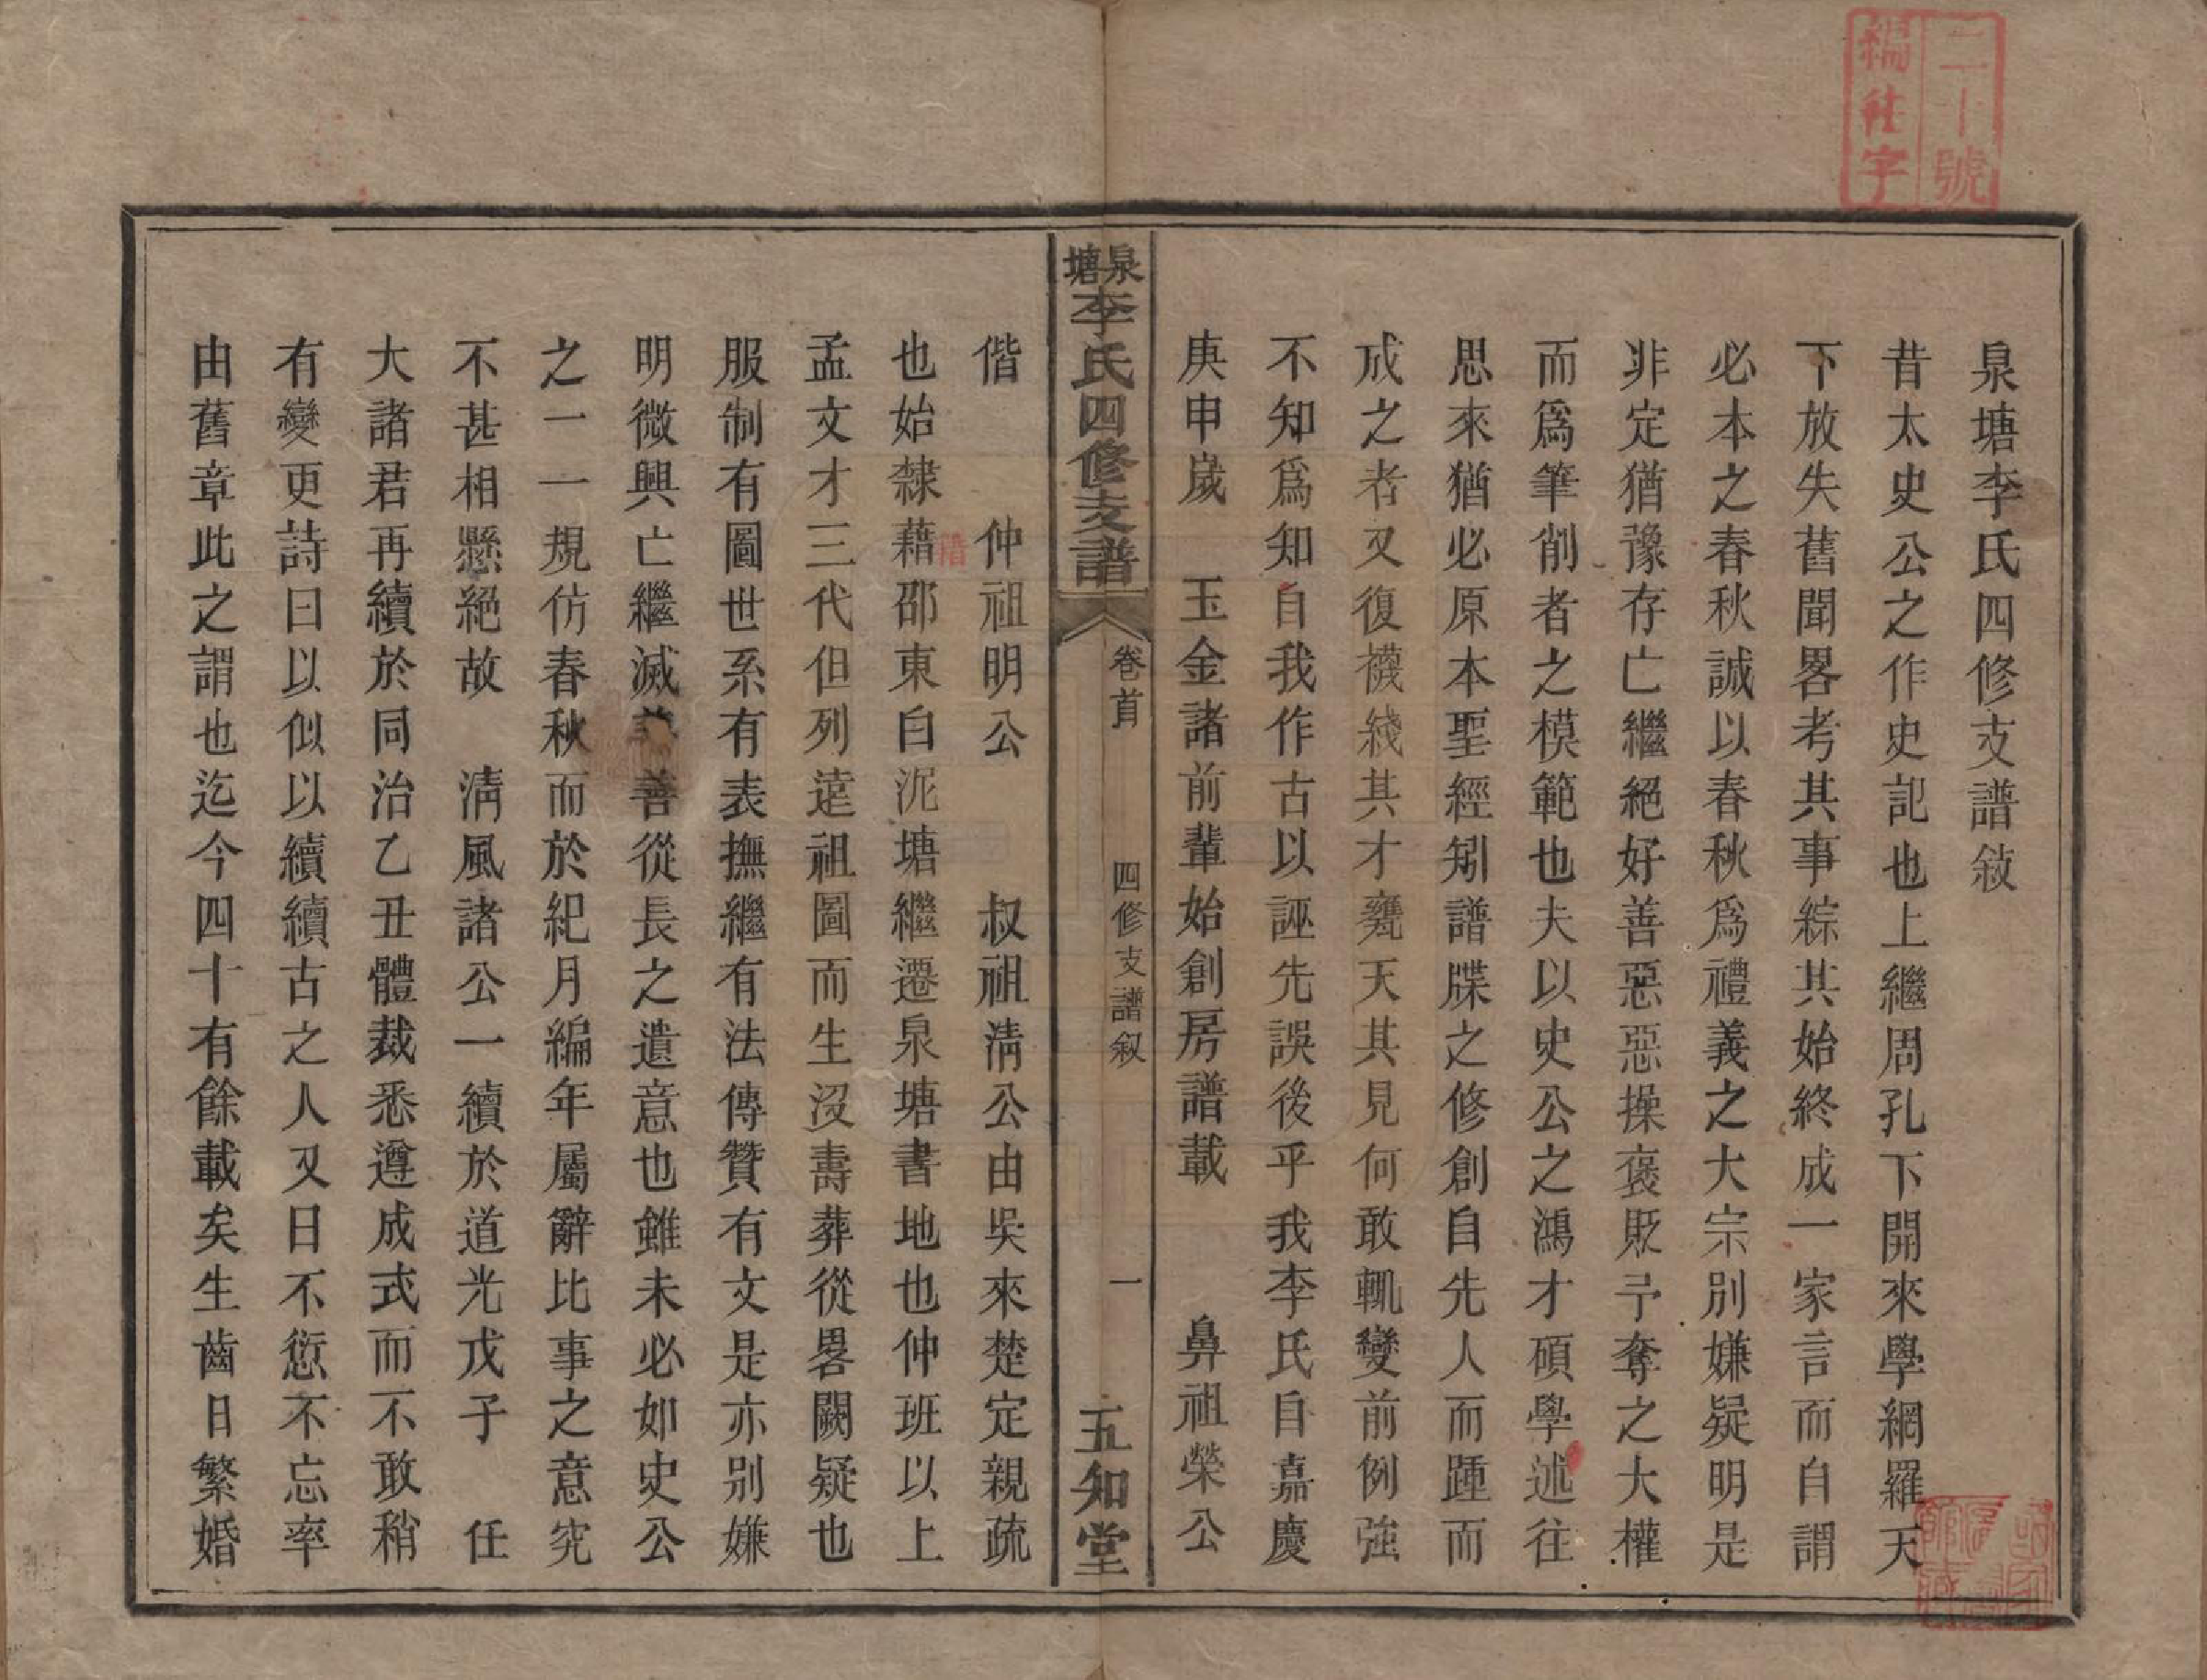 二十號
編社字
泉塘李氏四修支譜敍
昔太史公之作史記也上繼周孔下開來學網羅天
下放失舊聞畧考其事綜其始終成一家言而自謂
必本之春秋誠以春秋爲禮義之大宗別嫌疑明是
非定猶豫存亡繼絕好善惡惡操褒貶予奪之大權
而爲筆削者之模範也夫以史公之鴻才碩學述往
思來猶必原本聖經矧譜牒之修創自先人而踵而
成之者又復襪綫其才甕天其見何敢輒變前例強
不知爲知自我作古以誣先誤後乎我李氏自嘉慶
庚申歲 玉金諸前輩始創房譜載 鼻祖榮公
泉塘李氏四修支譜 卷首 四修支譜叙 一 五知堂
偕 仲祖明公 叔祖淸公由吳來楚定親疏
也始隸藉邵東白泥塘繼遷泉塘書地也仲班以上
孟文才三代但列遠祖圖而生沒壽葬從畧闕疑也
服制有圖世系有表撫繼有法傳贊有文是亦別嫌
明微興亡繼滅善善從長之遺意也雖未必如史公
之一一規仿春秋而於紀月編年屬辭比事之意究
不甚相懸絕故 淸風諸公一續於道光戊子 任
大諸君再續於同治乙丑體裁悉遵成式而不敢稍
有變更詩曰以似以續續古之人又曰不愆不忘率
由舊章此之謂也迄今四十有餘載矣生齒日繁婚